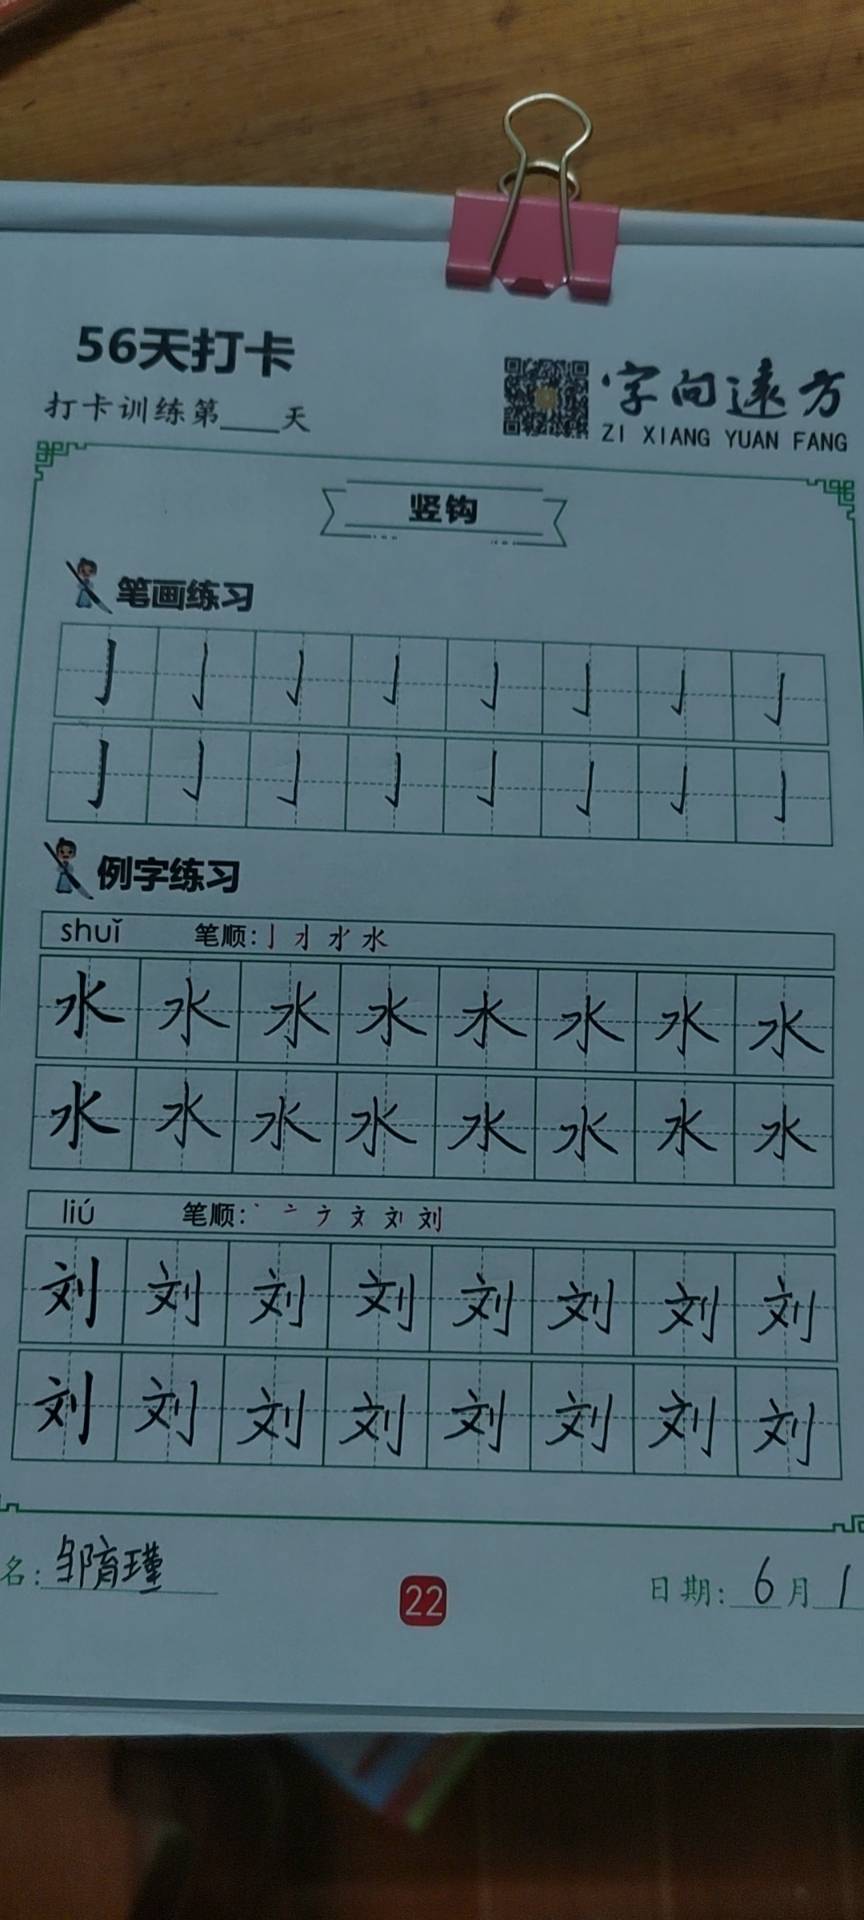 56天打卡
打卡训练第____天
字向遠方
ZI XIANG YUAN FANG
竖钩
笔画练习
亅 亅 亅 亅 亅 亅 亅 亅
亅 亅 亅 亅 亅 亅 亅 亅
例字练习
shuǐ 笔顺:亅 水
水 水 水 水 水 水 水 水
水 水 水 水 水 水 水 水
liú 笔顺:丶 亠 文 刘
刘 刘 刘 刘 刘 刘 刘 刘
刘 刘 刘 刘 刘 刘 刘 刘
名:邹育瑾
22
日期:6月1